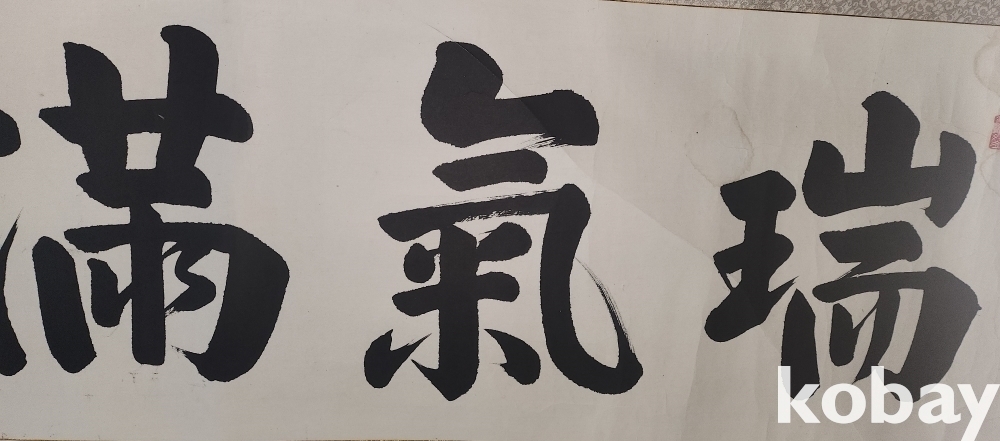 瑞氣滿
kobay